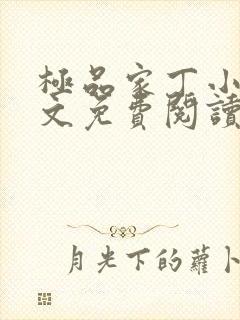 極品家丁小
文免費閱讀
月光下的蘿卜